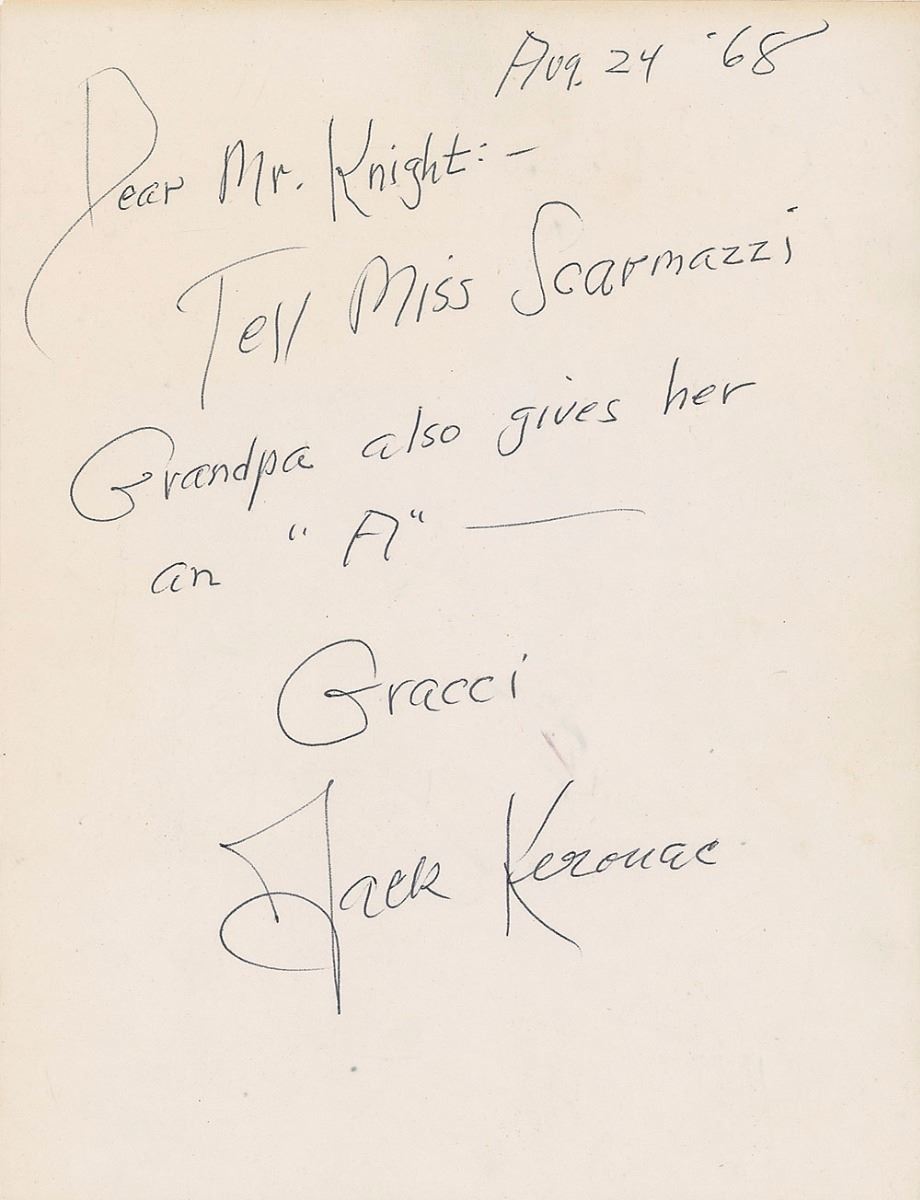 Aug. 24 '68
Dear Mr. Knight: —
Tell Miss Scarmazzi
Grandpa also gives her
an "A" —
Gracci
Jack Kerouac